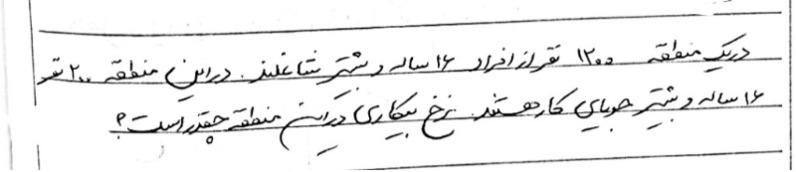 در یک منطقه ۱۲۰۰ نفر از افراد ۱۶ ساله و بیشتر شاغلند. در این منطقه ۲۰۰ نفر
۱۶ ساله و بیشتر جویای کار هستند. نرخ بیکاری در این منطقه چقدر است؟